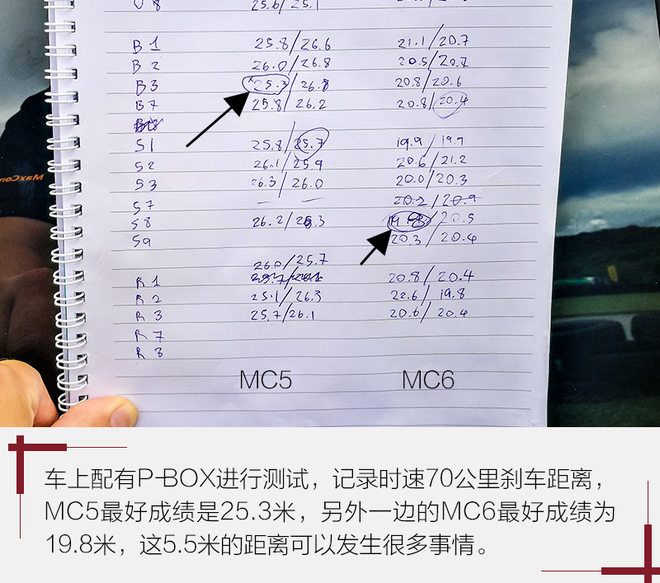 U 8 25.6/25.1
B 1 25.8/26.6 21.1/20.7
B 2 26.0/26.8 20.5/20.7
B3 25.3/26.8 20.8/20.6
B7 25.8/26.2 20.8/20.4
S1 25.8/25.7 19.9/19.7
S2 26.1/25.9 20.6/21.2
S3 26.3/26.0 20.0/20.3
S7 — — 20.2/20.9
S8 26.2/26.3 /20.5
S9 20.3/20.4
26.0/25.7
R 1 20.8/20.4
R 2 25.1/26.3 22.6/19.8
R 3 25.7/26.1 20.6/20.4
R 7
R 8
MC5 MC6
MaxCam
车上配有P-BOX进行测试，记录时速70公里刹车距离，
MC5最好成绩是25.3米，另外一边的MC6最好成绩为
19.8米，这5.5米的距离可以发生很多事情。